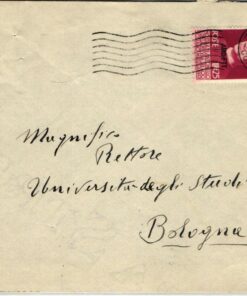 Magnifico
Rettore
Università degli Studi
Bologna